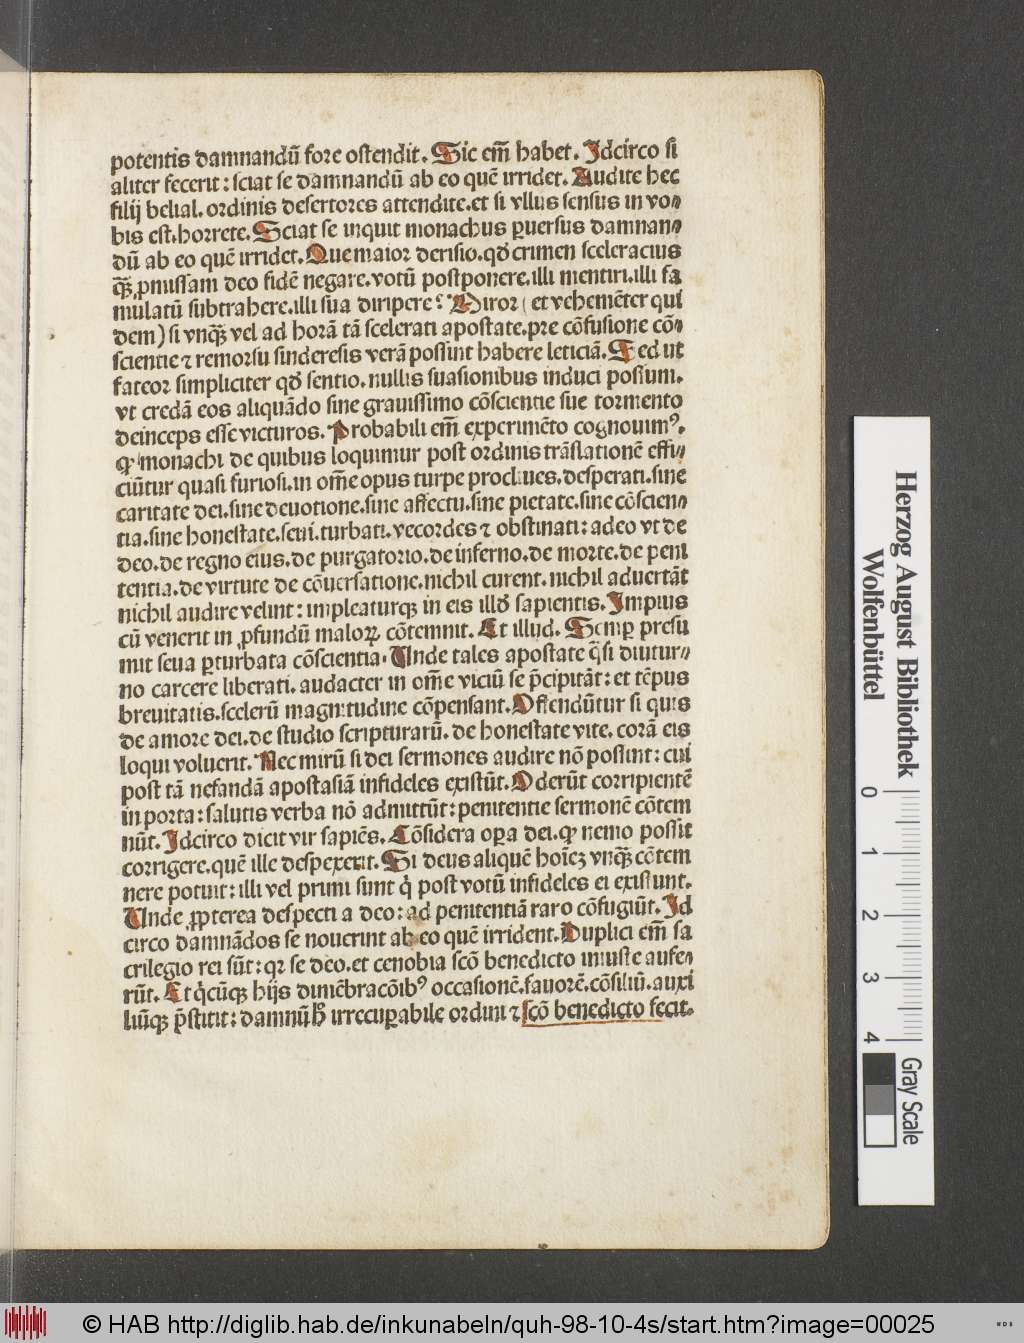 potentis damnandū fore ostendit. Sic em̄ habet. Idcirco si
aliter fecerit: sciat se damnandū ab eo quē irridet. Audite hec
filij belial. ordinis desertores attendite. et si vllus sensus in vo⸗
bis est. horrete. Sciat se inquit monachus ꝑuersus damnan⸗
dū ab eo quē irridet. Que maior derisio. qđ crimen sceleracius
qꝫ̄ ꝓmissam deo fidē negare. votū postponere. illi mentiri. illi fa
mulatū subtrahere. illi sua diripere? Miror (et vehemēter qui
dem) si vnqꝫ̄ vel ad horā tā scelerati apostate. pre cōfusione cō⸗
scientie ⁊ remorsu sinderesis verā possint habere leticiā. Sed ut
fateor simpliciter qđ sentio. nullis suasionibus induci possum.
vt credā eos aliquādo sine grauissimo cōscientie sue tormento
deinceps esse victuros. Probabili em̄ experimēto cognouimꝰ.
ꝙ monachi de quibus loquimur post ordinis trāslationē effi⸗
ciūtur quasi furiosi. in om̄e opus turpe procliues. desperati. sine
caritate dei. sine deuotione. sine affectu. sine pietate. sine cōscien⸗
tia. sine honestate. seui. turbati. vecordes ⁊ obstinati: adeo vt de
deo. de regno eius. de purgatorio. de inferno. de morte. de peni
tentia. de virtute de cōuersatione. nichil curent. nichil aduertāt
nichil audire velint: impleaturqꝫ in eis illđ sapientis. Impius
cū venerit in ꝓfundū maloꝝ cōtemnit. Et illud. Semꝑ presu
mit seua ꝑturbata cōscientia. Unde tales apostate q̄si diutur⸗
no carcere liberati. audacter in om̄e viciū se p̄cipitāt: et tēpus
breuitatis. scelerū magnitudine cōpensant. Offendūtur si quis
de amore dei. de studio scripturarū. de honestate vite. corā eis
loqui voluerit. Nec mirū si dei sermones audire nō possint: cui
post tā nefandā apostasiā infideles existūt. Oderūt corripientē
in porta: salutis verba nō admittūt: penitentie sermonē cōtem
nūt. Idcirco dicit vir sapiēs. Cōsidera oꝑa dei. ꝙ nemo possit
corrigere. quē ille despexerit. Si deus aliquē hoīeꝫ vnqꝫ̄ cōtem
nere potuit: illi vel primi sunt q̇ post votū infideles ei existunt.
Unde ꝓpterea despecti a deo: ad penitentiā raro cōfugiūt. Id
circo damnādos se nouerint ab eo quē irrident. Duplici em̄ sa
crilegio rei sūt: qꝛ se deo. et cenobia scō benedicto iniuste aufe⸗
rūt. Et q̇cūqꝫ hijs dimēbracōibꝰ occasionē. fauorē. cōsiliū. auxi
liūqꝫ p̄stitit: damnū irrecuꝑabile ordini ⁊ scō benedicto fecit.
Herzog August Bibliothek
Wolfenbüttel
0 1 2 3 4
Gray Scale
© HAB http://diglib.hab.de/inkunabeln/quh-98-10-4s/start.htm?image=00025